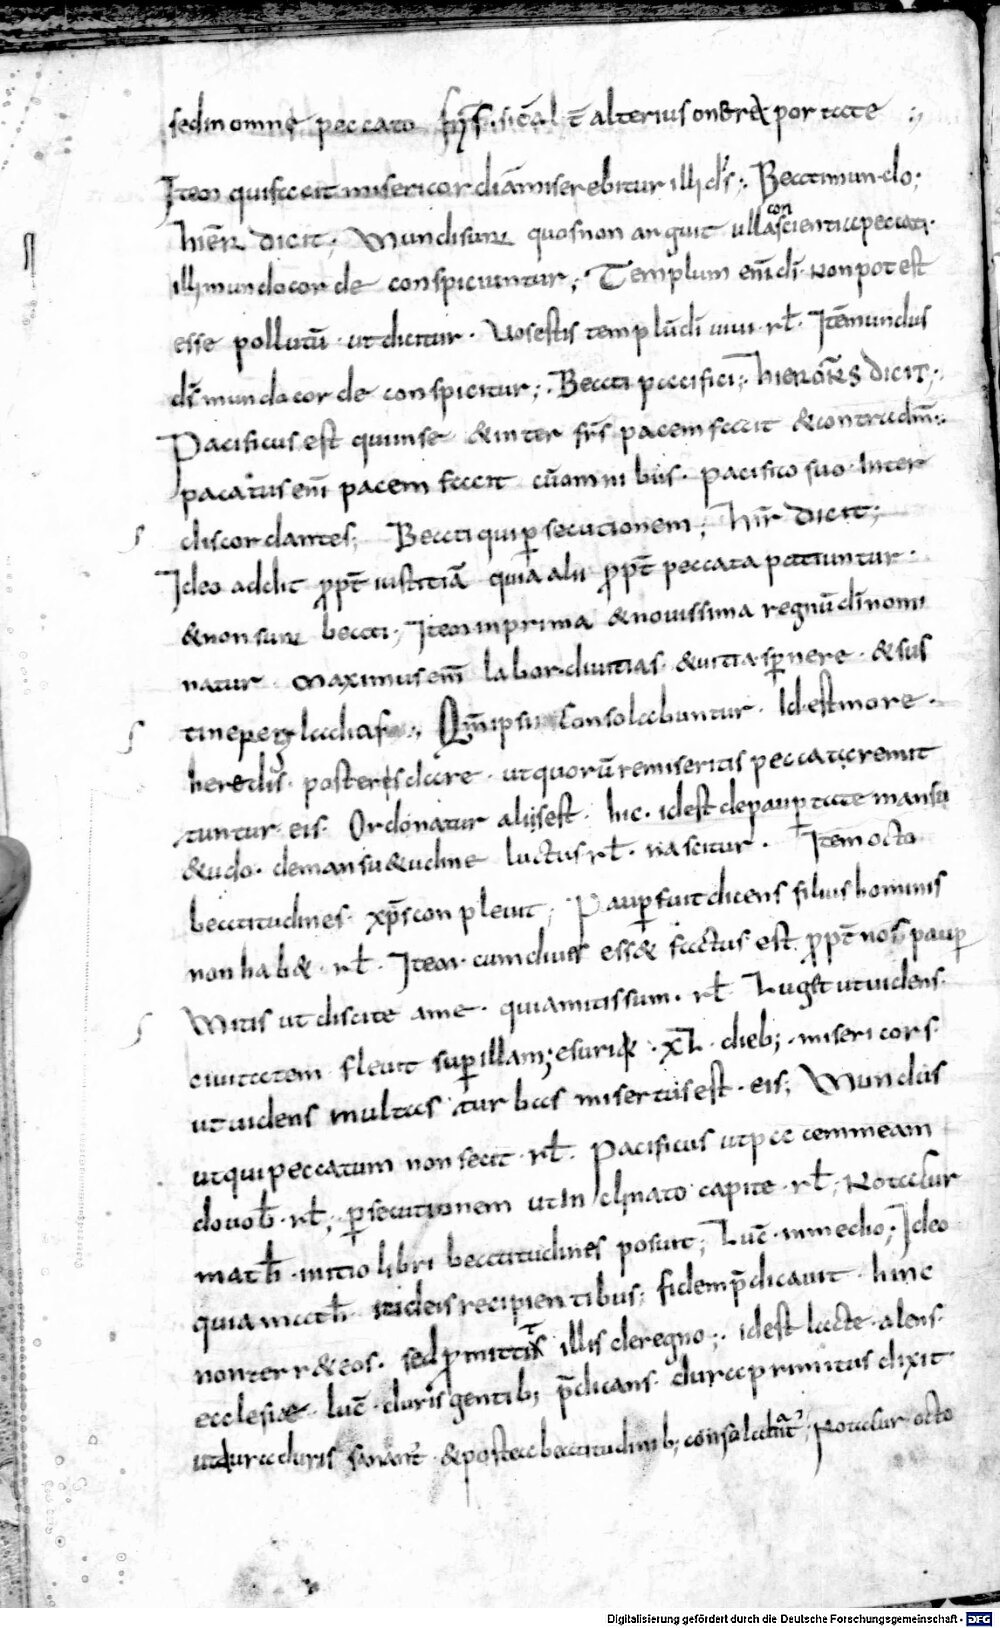 sedinomne peccato sic̄ al t̄ alterius onera portate
Item quifacit misericordiā miserebitur illi d̄s; Beati mundo;
hier dicit; Mundi sunt quos non arguit ulla conscientia peccati.
illi mundo corde conspiciuntur; Templum enī dī non potest
esse pollutū. ut dicitur. Vos estis templū dī uiui. rł. Itē mundus
dī mundo corde conspicitur; Beati pacifici; hieronī dicit;
Pacificus est qui in se & inter frs̄ pacem facit & contra dnī;
pacatus enī pacem facit cū omnibus. pacifico suo inter
discordantes; Beati qui ꝑsecutionem; hir̄ dicit;
Ideo addit ꝓpt̄ iustitiā quia alii ꝓpt̄ peccata patiuntur.
& non sunt beati; Item in prima & nouissima regnū dī nomi
natur. maximus enī labor diuitias. & uitia sꝑnere. & sus
tinere Qm̄ ipsi consolabuntur. Id est more.
heredis. posteris dare. ut quorū remiseritis peccata remit
tuntur eis. Ordo natur alijs est. hic. id est depauꝑtate mansu
&udo. de mansu&udine luctus rł. nascitur. Item octo
beatitudines xp̄s conpleuit; Pauꝑ fuit dicens filius hominis
non hab& rł. Item cum diues ess& factus est ꝓpt̄ nos pauꝑ
Mitis ut discite a me. quia mitis sum. rł. Luget ut uidens.
ciuitatem fleuit suꝑ illam; esurit XL dieb; misericors.
ut uidens multas turbas misertus est. eis; Mundus
ut qui peccatum non fecit. rł. Pacificus ut pacem meam
do uob̄. rł; ꝑsecutionem ut inclinato capite. rł; Notatur
math̄. initio libri beatitudines posuit; Luc̄. in medio; Ideo
quia math̄ iudeis recipientibus; fidem p̄dicauit. hinc
non terr& eos. sed ꝓmittit illis de regno; id est lacte alens.
ecclesiae. luc̄ duris gentib; p̄dicans. dura primitus dixit.
ut dura duris sanant̉. & postea beatitudinib; consolat̉; Notatur octo
Digitalisierung gefördert durch die Deutsche Forschungsgemeinschaft - DFG